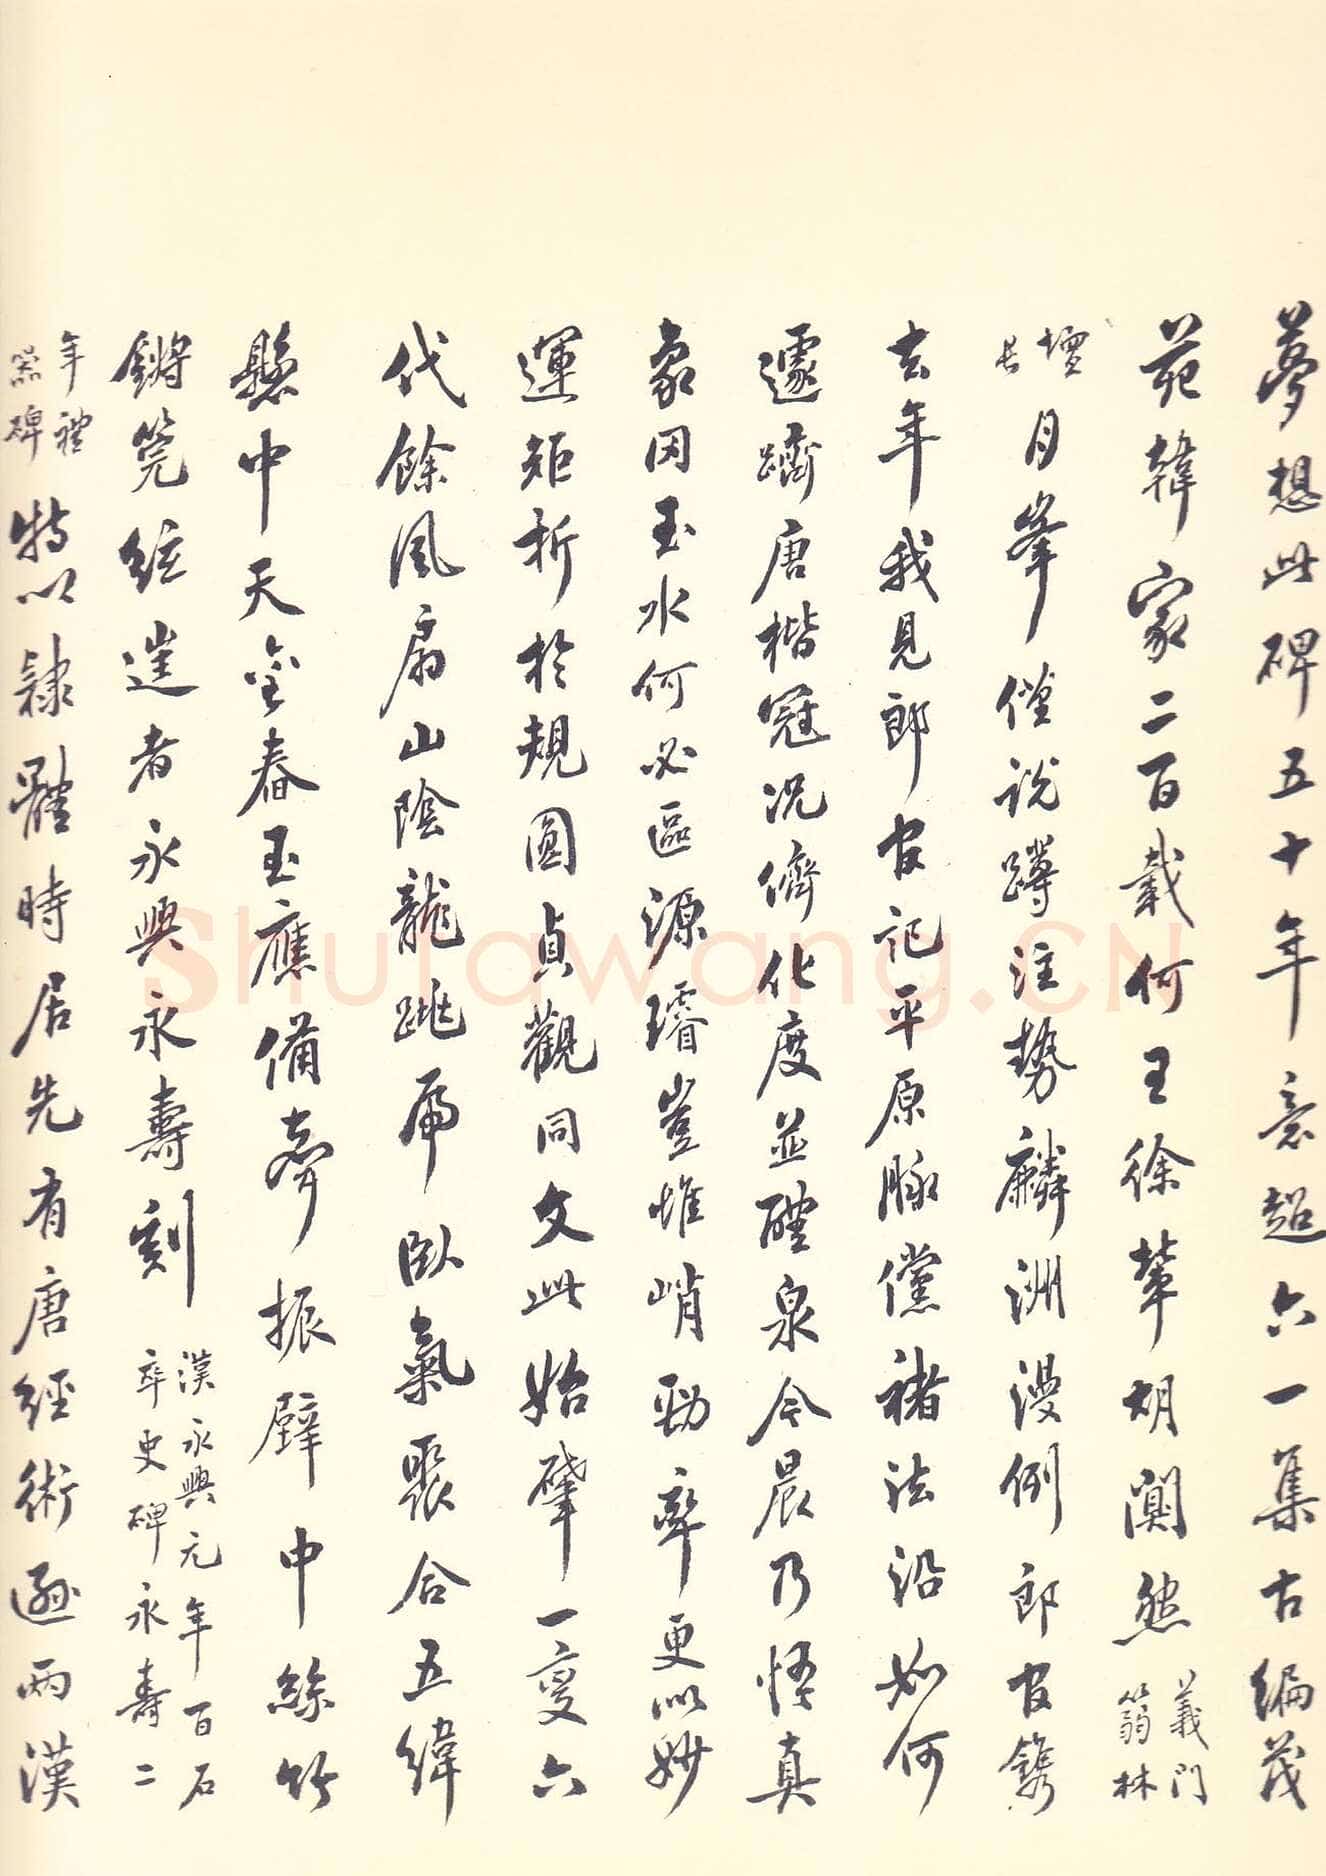 夢想此碑五十年意超六一集古編茂
苑韓家二百載何王徐輩胡闃然義門
篛林
壇
長月峯僅說蹲注勢麟洲漫例郎官鐫
去年我見郎官記平原脉儻褚法沿如何
遽躋唐楷冠況儕化度並醴泉今晨乃悟真
象因玉水何必區源璿豈惟峭勁率更似妙
運矩折於規圓貞觀同文此始肇一變六
代餘風扇山陰龍跳虎臥氣聚合五緯
懸中天金春玉應備齊振璧中絲竹
鏘筦絃造者永興永壽刻漢永興元年百石
卒史碑永壽二
年禮
器碑特以隸體時居先有唐經術遜兩漢
Shufawang.CN